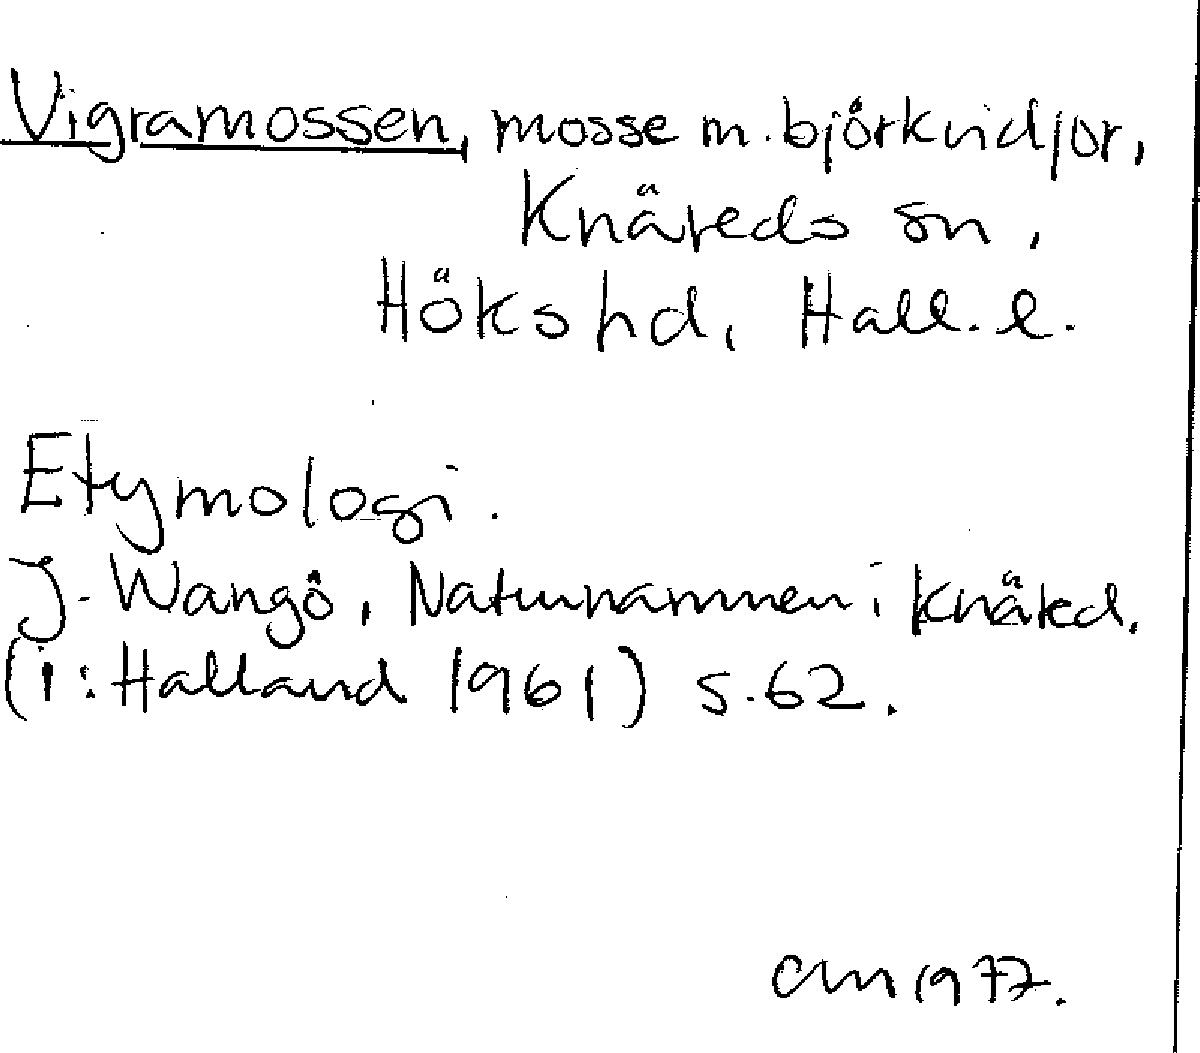 Vigramossen, mosse m. björkvidjor,
Knäreds sn,
Höks hd, Hall. l.
Etymologi.
J. Wangö, Naturnamnen i Knäred.
(i: Halland 1961) s. 62.
CM 1977.